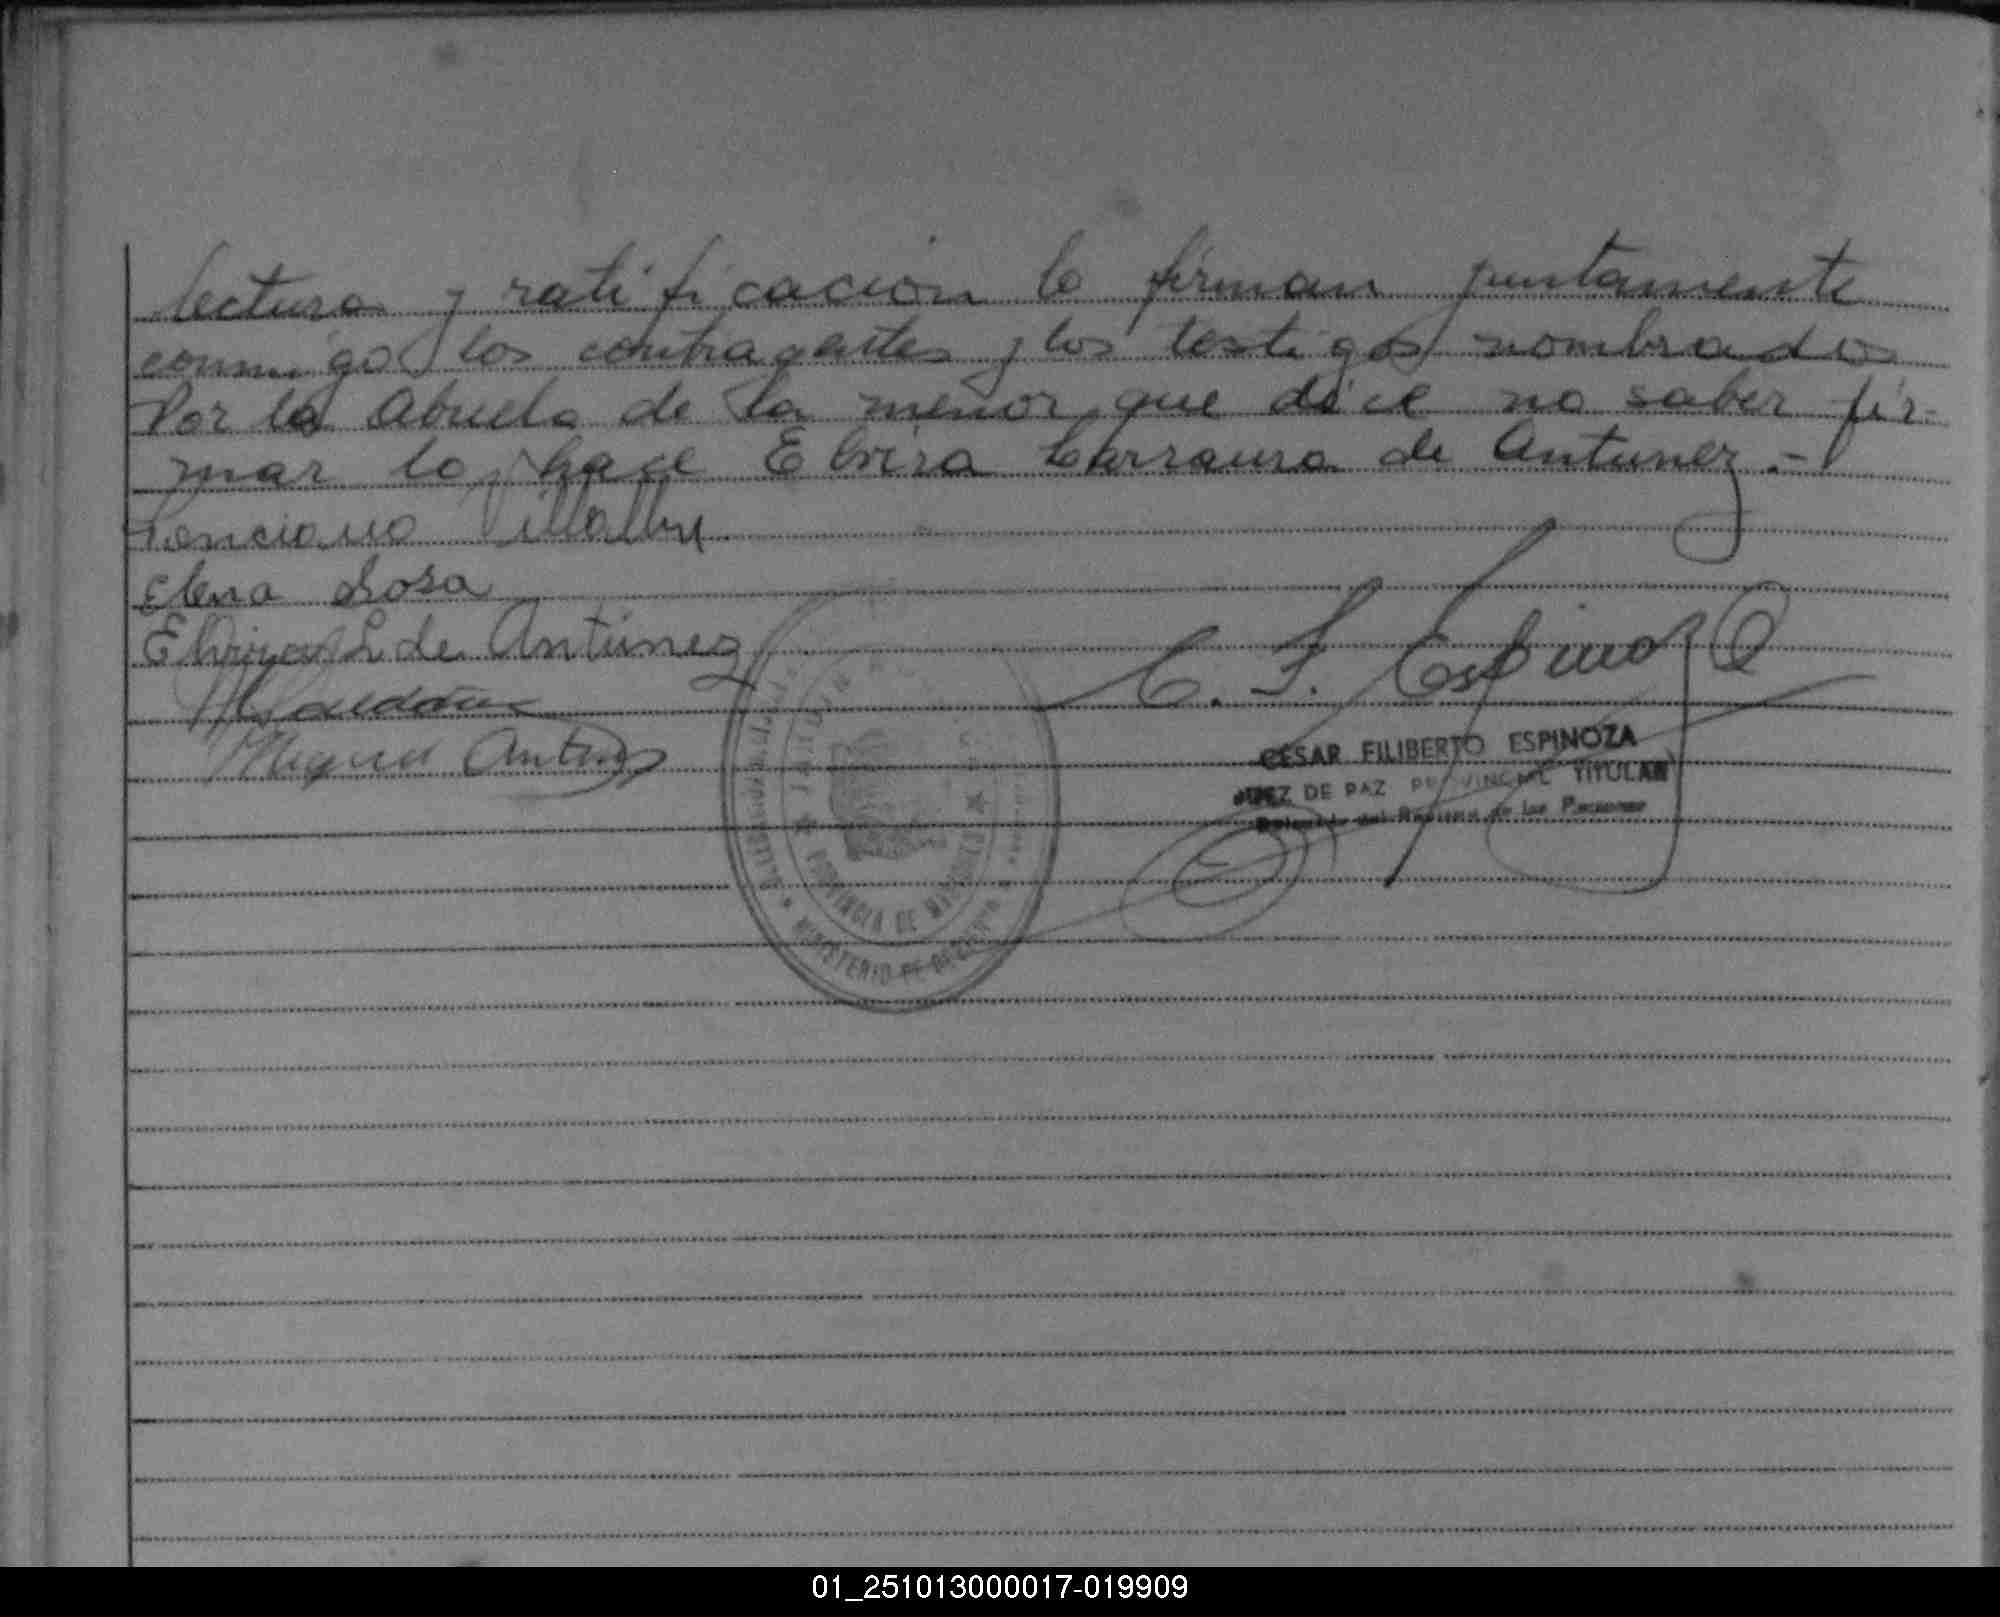 lectura y ratificación lo firman juntamente
conmigo los contrayentes y los testigos nombrados
Por la Abuela de la menor, que dice no saber fir-
mar lo hace Elvira Larraura de Antunez.-
Ponciano Villalba
Elena Sosa
Elvira L de Antúnez
Miguel Antunez
C. F. Espinoza
CESAR FILIBERTO ESPINOZA
JUEZ DE PAZ PROVINCIAL TITULAR
Delegado del Registro de las Personas
PROVINCIA DE MISIONES
MINISTERIO DE GOBIERNO
01_251013000017-019909